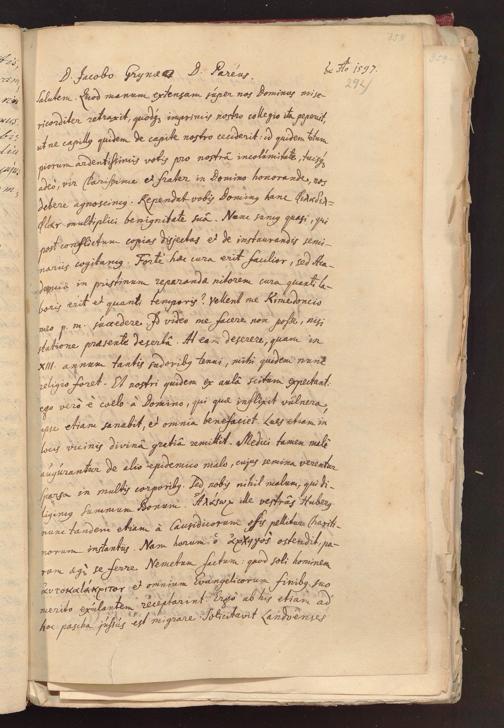 D. Jacobo Grynæo D. Paréus.
Ao 1597.
294
Salutem. Quod manum extensam super nos Dominus mise-
ricorditer retraxit, quodq; imprimis nostro collegio ita pepercit,
ut ne capillus quidem de capite nostro ceciderit: id quidem
piorum ardentissimis votis pro nostrâ incolumitate, tuisq;
adeò, vir clarissime et frater in Domino honorande, nos
debere agnoscimus. Rependat vobis Dominus hanc
multiplici benignitate suâ. Nunc sumus quasi, qui
post conflictum copias disjectas et de instaurandis semi-
nariis cogitamus. Fortè hæc cura erit facilior, sed Aca-
demiæ in pristinum reparanda nitorem cura quanti la-
boris erit et quanti temporis? Vellent me Kimedoncio
meo p. m. succedere. Id video me facere non posse, nisi
statione præsente desertâ. At eam deserere, quam in
XIII. annum tantis sudoribus tenui, mihi quidem nunc
religio foret. Et nostri quidem ex aulâ scitum expectant:
ego verò è coelo à Domino, qui quæ inflixit vulnera,
ipse etiam sanabit, et omnia benefaciet. Lues etiam in
locis vicinis divinâ gratiâ remittit. Medici tamen malè
augurantur de alio epidemico malo, cujus semina verentur
sparsa in multis corporibus. Sed nobis nihil malum, qui di-
ligimus summum Bonum. ille vestrâs Huberg
nunc tandem etiam à Causidicorum
norum instantus. Nam horum ὁ ἀρχηγὸς ostendit, pa-
rum se ferre. Nemetum factum: quod soli hominem
αὐτοκατάκριτον et omnium Evangelicorum finibus suo
merito exulantem receptarint. Ergò ab his etiam ad
hoc pascha jussus est migrare. Solicitavit Landvenses